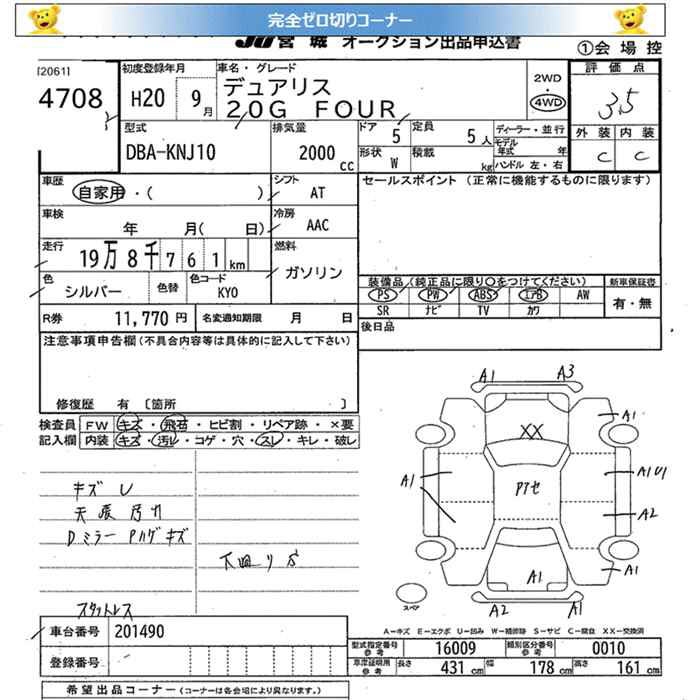 完全ゼロ切りコーナー
JU宮城 オークション出品申込書
①会 場 控
[2061]
4708
初度登録年月
H20 9月
車名・グレード
デュアリス
20G FOUR
2WD
・
4WD
評 価 点
3.5
外 装 内 装
C C
型式
DBA-KNJ10
排気量
2000 cc
ドア 5
定員 5人
形状 W
積載 kg
ディーラー・並行
モデル年式 年
ハンドル 左・右
車歴
自家用・( )
シフト
AT
セールスポイント (正常に機能するものに限ります)
車検
年 月( 日)
冷房
AAC
走行
19万8千761km
燃料
ガソリン
色
シルバー
色替
色コード
KY0
装備品(純正品に限り○をつけてください)
PS PW ABS エアB AW
SR ナビ TV カワ
新車保証書
有・無
R券 11,770円
名変通知期限 月 日
後日品
注意事項申告欄(不具合内容等は具体的に記入して下さい)
修復歴 有 [箇所 ]
検査員記入欄
FW キズ・飛石・ヒビ割・リペア跡・×要
内装 キズ・汚レ・コゲ・穴・スレ・キレ・破レ
キズ U
天張汚れ
Dミラー Pハゲキズ
下廻りサ
スタットレス
A1 A3
A1
XX
A1 Pアセ A1U1
A2
A1 A1
A2 A1
スペア
A-キズ E-エクボ U-凹み W-補修跡 S-サビ C-腐食 XX-交換済
車台番号 201490
型式指定番号参考 16009
類別区分番号参考 0010
登録番号
車庫証明用参考 長さ 431cm 幅 178cm 高さ 161cm
希望出品コーナー(コーナーは各会場により異なります。)